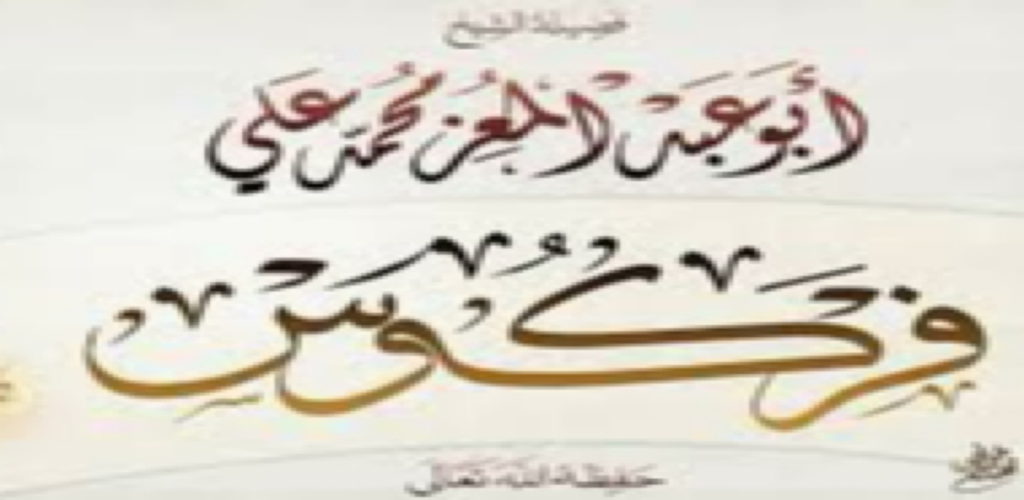 فضيلة الشيخ
أبو عبد المعز محمد علي
فركوس
حفظه الله تعالى